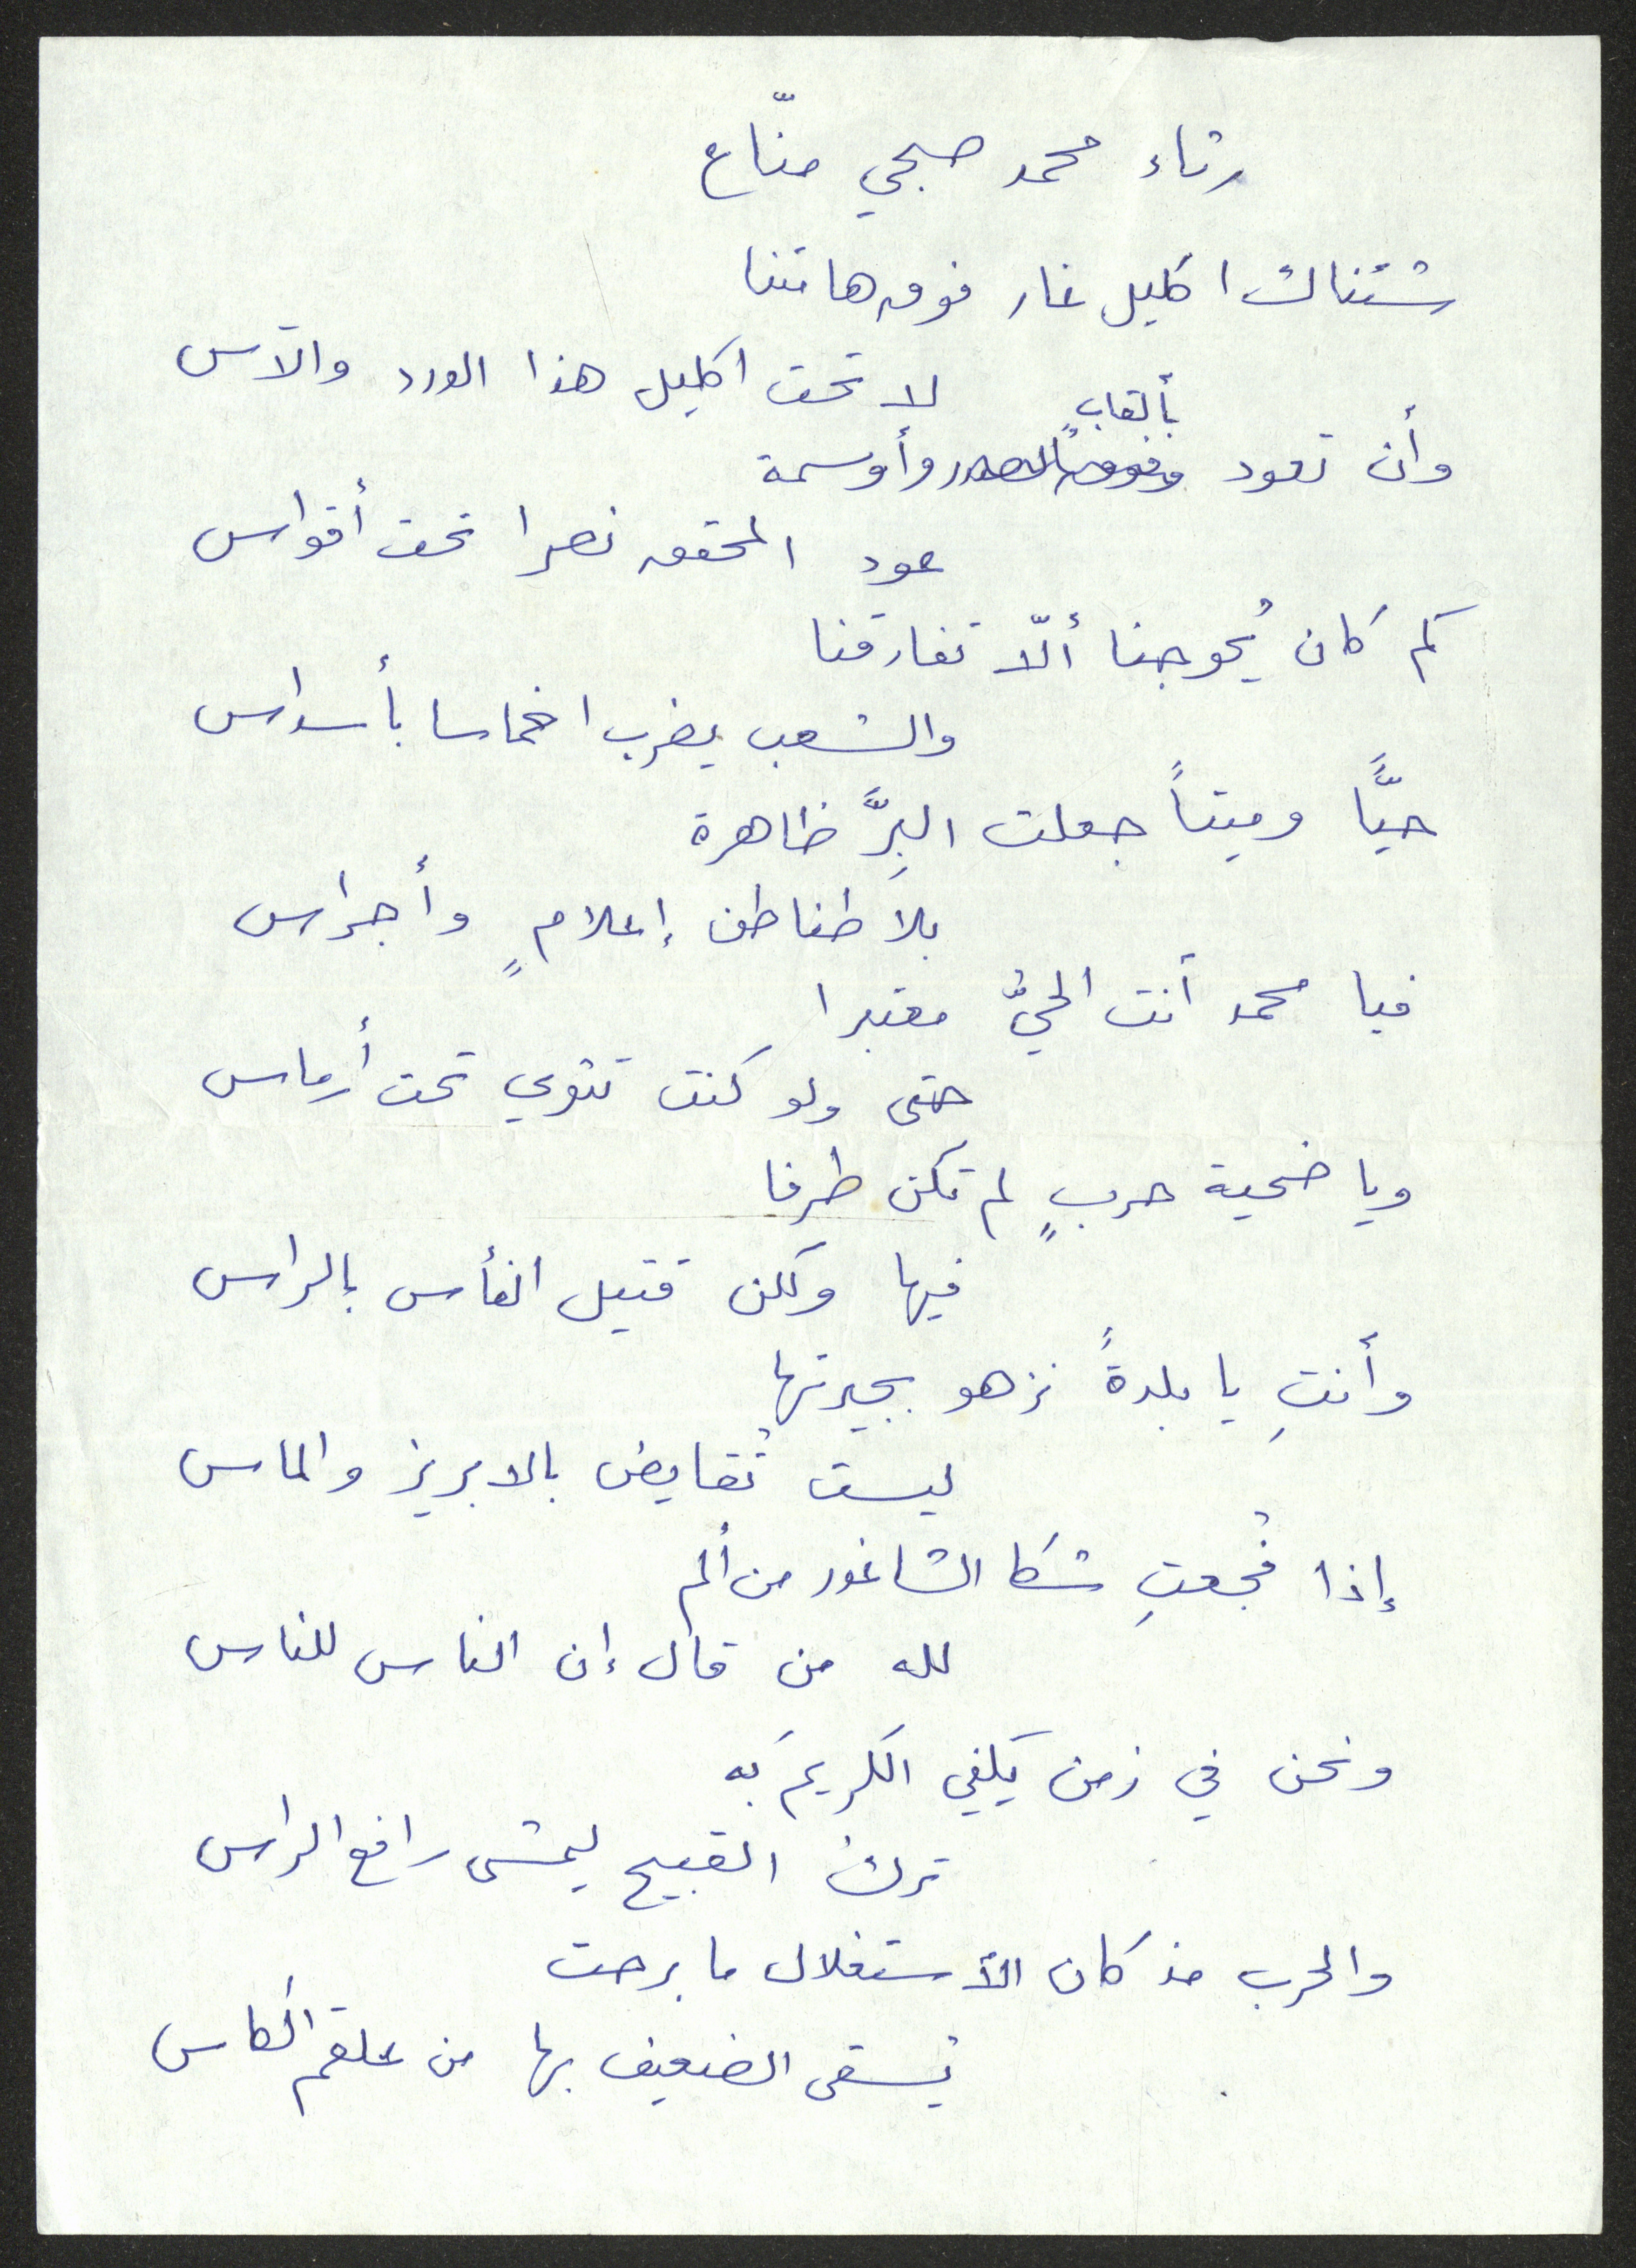 رثاء محمد صبحي منّاع
شئناك اكليل غار فوق هامتنا
لا تحت اكليل هذا الورد والآس
بألقابٍ
وأن تعود وأوسمة
عود المحقق نصرا تحت أقواس
كم كان يُحوجنا ألّا تفارقنا
والشعب يضرب اخماسا بأسداس
حيًّا وميتاً جعلت البِرَّ ظاهرة
بلا طناطن إعلامٍ وأجراس
فيا محمد أنت الحيُّ معتبرا
حتى ولو كنت تثوي تحت أرماس
ويا ضحية حربٍ لم تكن طرفا
فيها ولكن قتيل الفأس بالراس
وأنتِ يا بلدةً نزهو بجيرتها
ليست تُقايض بالابريز والماس
إذا فُجعتِ شكا الشاغور من ألم
لله من قال إن الناس للناس
ونحن في زمن يكفي الكريمَ به
ترك القبيح ليمشى رافع الراس
والحرب مذ كان الأستغلال ما برحت
تسقى الضعيف بها من علقم الكاس